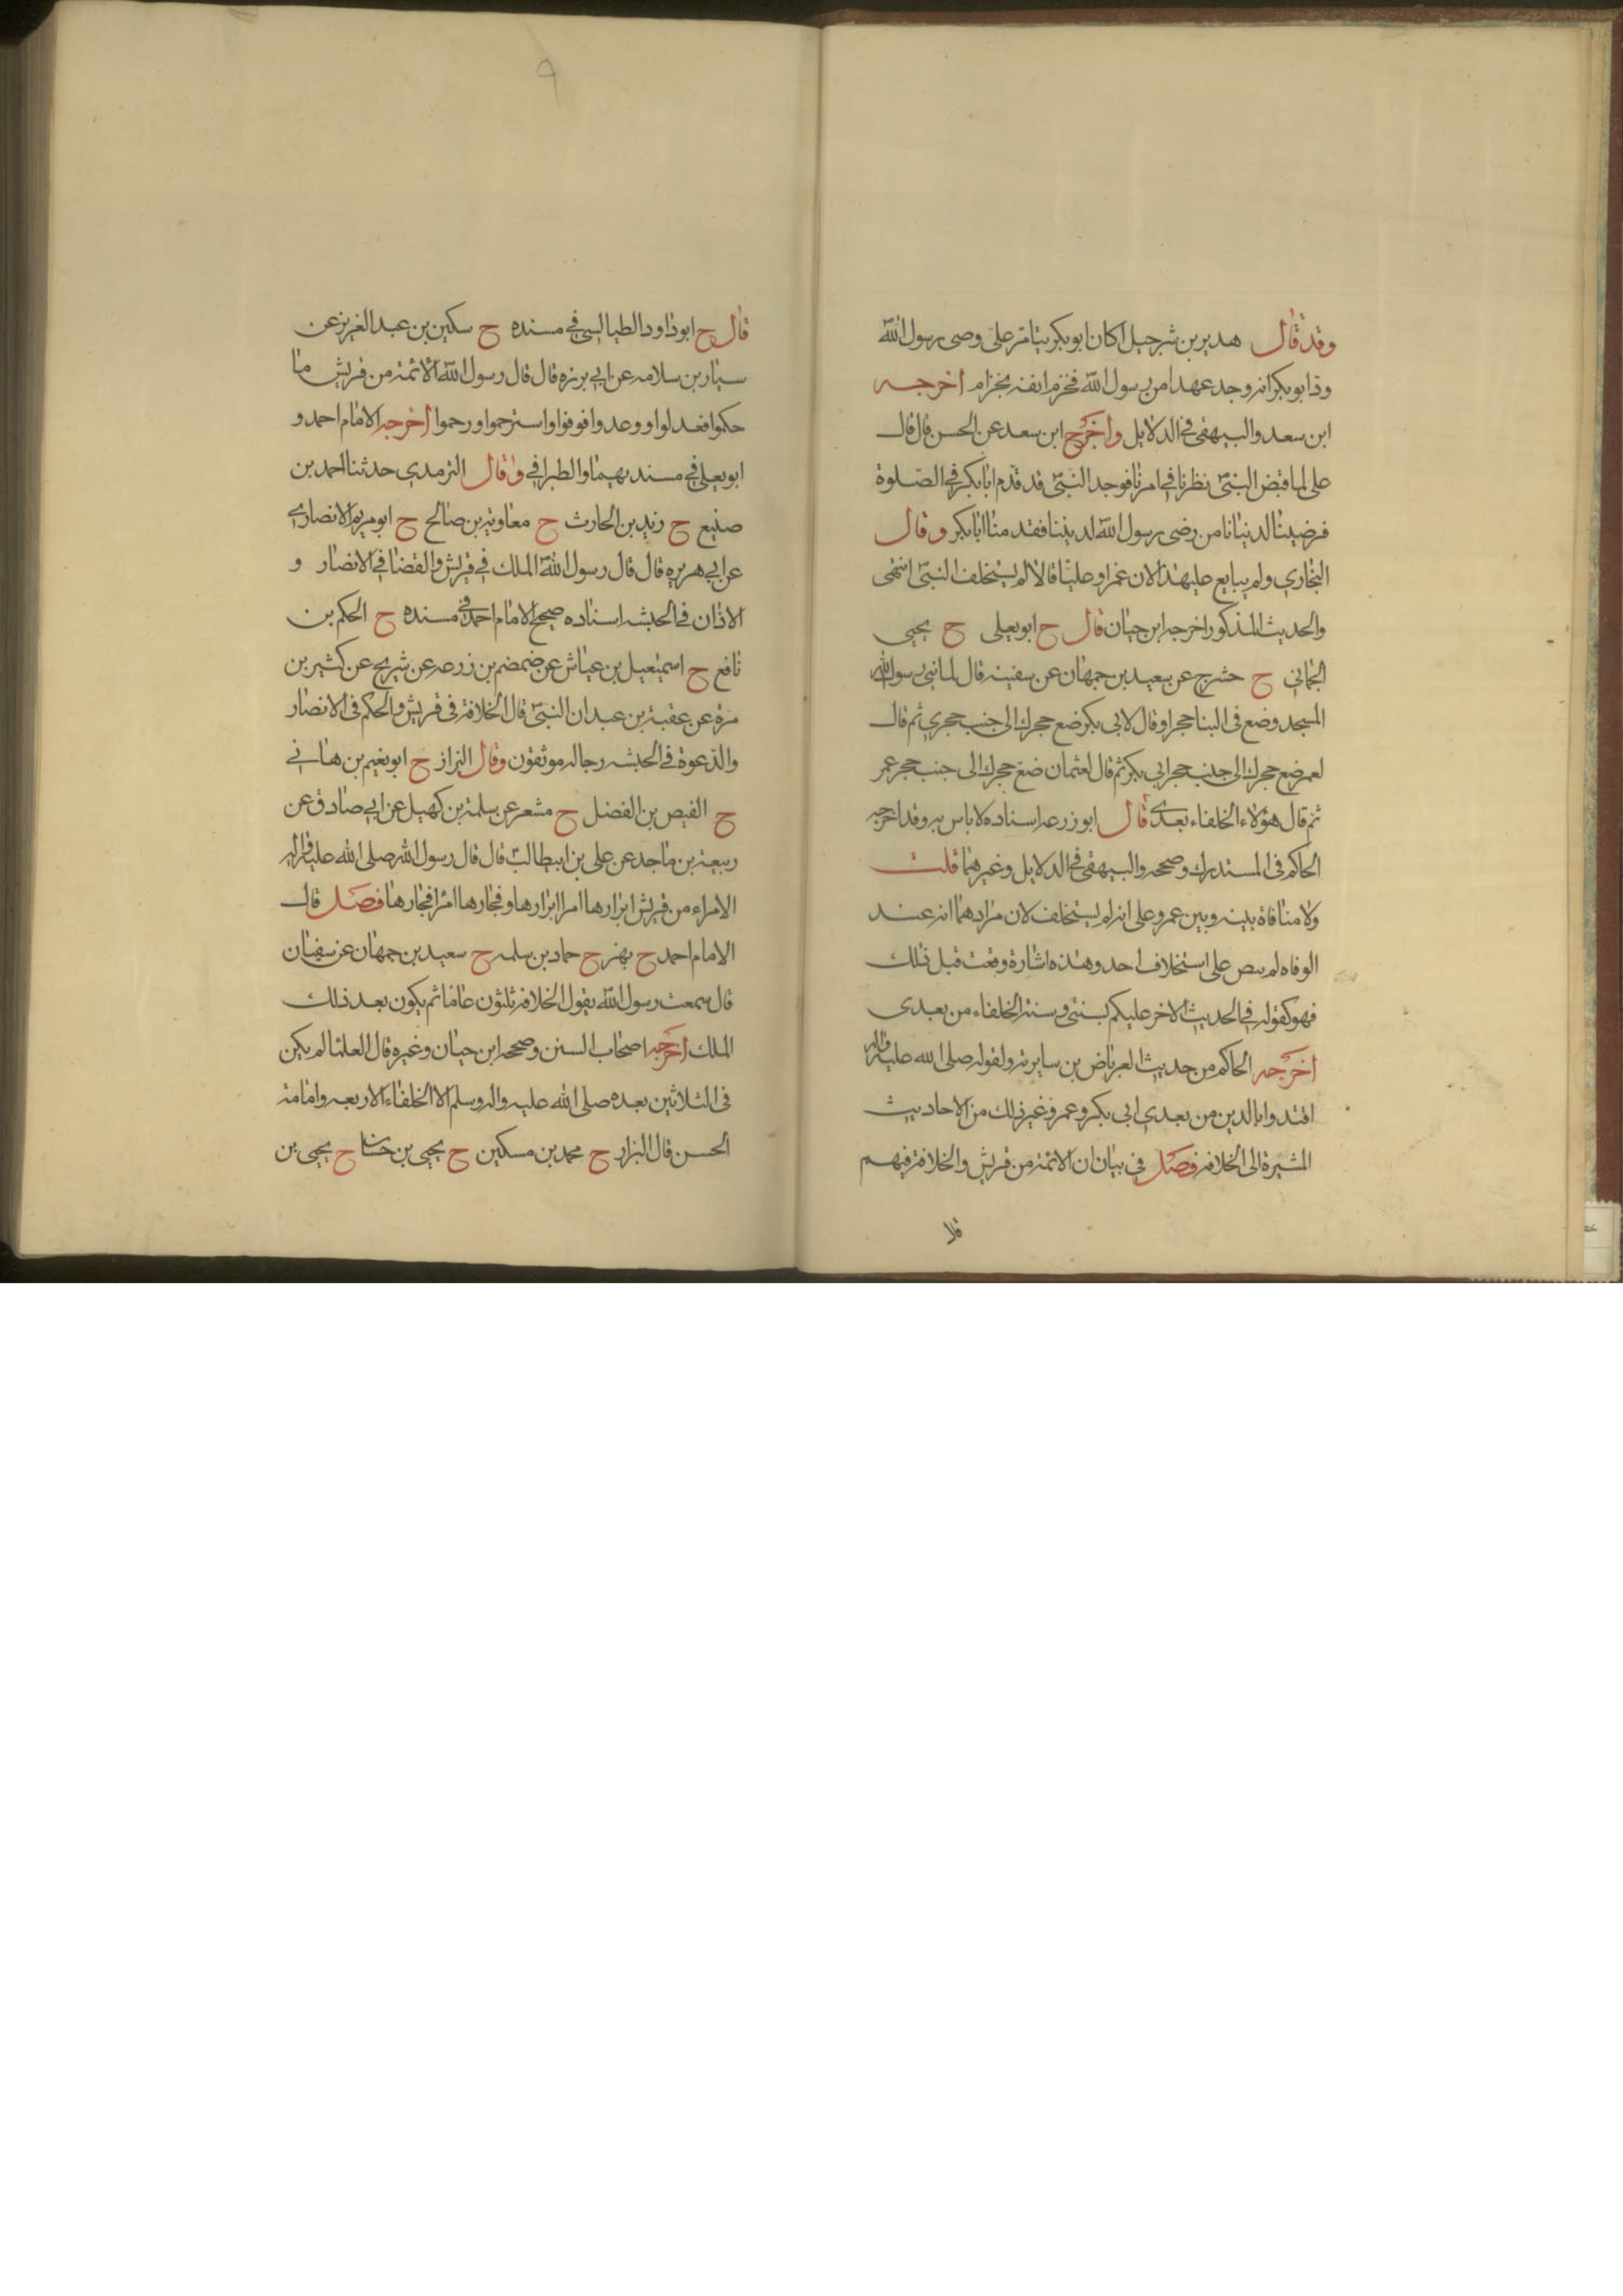 وقد قال هدير بن شرجيل اكان ابو بكر يتامر على وصى رسول الله
ودّ ابو بكر انه وجد عهدا من رسول الله فخزم انفه بخزام اخرجه
ابن سعد والبيهقى فى الدلايل واخرج ابن سعد عن الحسن قال قال
على لما قبض النبىّ نظرنا فى امرنا فوجد النبىّ قد قدّم ابابكر فى الصّلوة
فرضينا لدنيانا من رضى رسول الله لديننا فقدمنا ابابكر وقال
البخارى ولم يبايع عليهذا لان عمر او عليّا قالا لم يستخلف النبىّ انتهى
والحديث المذكور اخرجه ابن حبان قال ح ابو يعلى ح يحيى
الجمانى ح حشرج عن سعيد بن جمهان عن سفينه قال لما بنى رسول الله
المسجد وضع فى البنا حجرا وقال لابى بكر ضع حجرك الى جنب حجرى ثم قال
لعمر ضع حجرك الى جنب حجر ابى بكر ثم قال لعثمان ضع حجرك الى جنب حجر عمر
ثم قال هؤلاء الخلفاء بعدى قال ابو زرعه اسناده لا باس به وقد اخرجه
الحاكم فى المستدرك وصححه والبيهقى فى الدلايل وغيرهما قلت
ولا منافاة بينه وبين عمر وعلى انه لم يستخلف لان مرادهما انه عند
الوفاه لم ينص على استخلاف احد وهذه اشارة وقعت قبل ذلك
فهو كقوله فى الحديث الاخر عليكم بسنتى وسنة الخلفاء من بعدى
اخرجه الحاكم من حديث العرباض بن سايرة ولقوله صلى الله عليه واله
اقتدوا بالدين من بعدى ابى بكر وعمر وغير ذلك من الاحاديث
المشيرة الى الخلافه فصل فى بيان ان الائمة من قريش والخلافة فيهم
قال ح ابو داود الطيالسى فى مسنده ح سكين بن عبد العزيز عن
سيار بن سلامه عن ابى برزه قال قال رسول الله الائمة من قريش ما
حكموا فعدلوا ووعدوا فوفوا واسترحموا ورحموا اخرجه الامام احمد و
ابو يعلى فى مسنديهما والطبرانى وقال الترمدى حدثنا احمد بن
صنيع ح زيد بن الحارث ح معاوية بن صالح ح ابو مريم الانصارى
عن ابى هريره قال قال رسول الله الملك فى قريش والقضا فى الانصار و
الاذان فى الحبشه اسناده صحيح الامام احمد فى مسنده ح الحكم بن
نافع ح اسمعيل بن عياش عن ضمضم بن زرعه عن شريح عن كثير بن
مرة عن عقبة بن عبد ان النبىّ قال الخلافة فى قريش والحكم فى الانصار
والدّعوة فى الحبشه رجاله موثقون وقال البزاز ح ابو نعيم بن هانى
ح الفيض بن الفضل ح مشعر عن سلمة بن كهيل عن ابى صادق عن
ربيعة بن ماجد عن على بن ابيطالب قال قال رسول الله صلى الله عليه واله
الامراء من قريش ابرارها امرا ابرارها وفجارها امرا فجارها فصل قال
الامام احمد ح بهز ح حماد بن سلمه ح سعيد بن جمهان عن سفيان
قال سمعت رسول الله يقول الخلافه ثلثون عاما ثم يكون بعد ذلك
الملك اخرجه اصحاب السنن وصححه ابن حبان وغيره قال العلما لم يكن
فى الثلاثين بعده صلى الله عليه واله وسلم الا الخلفاء الاربعه وامامة
الحسن قال البزار ح محمد بن مسكين ح يحيى بن حسّا ح يحيى بن